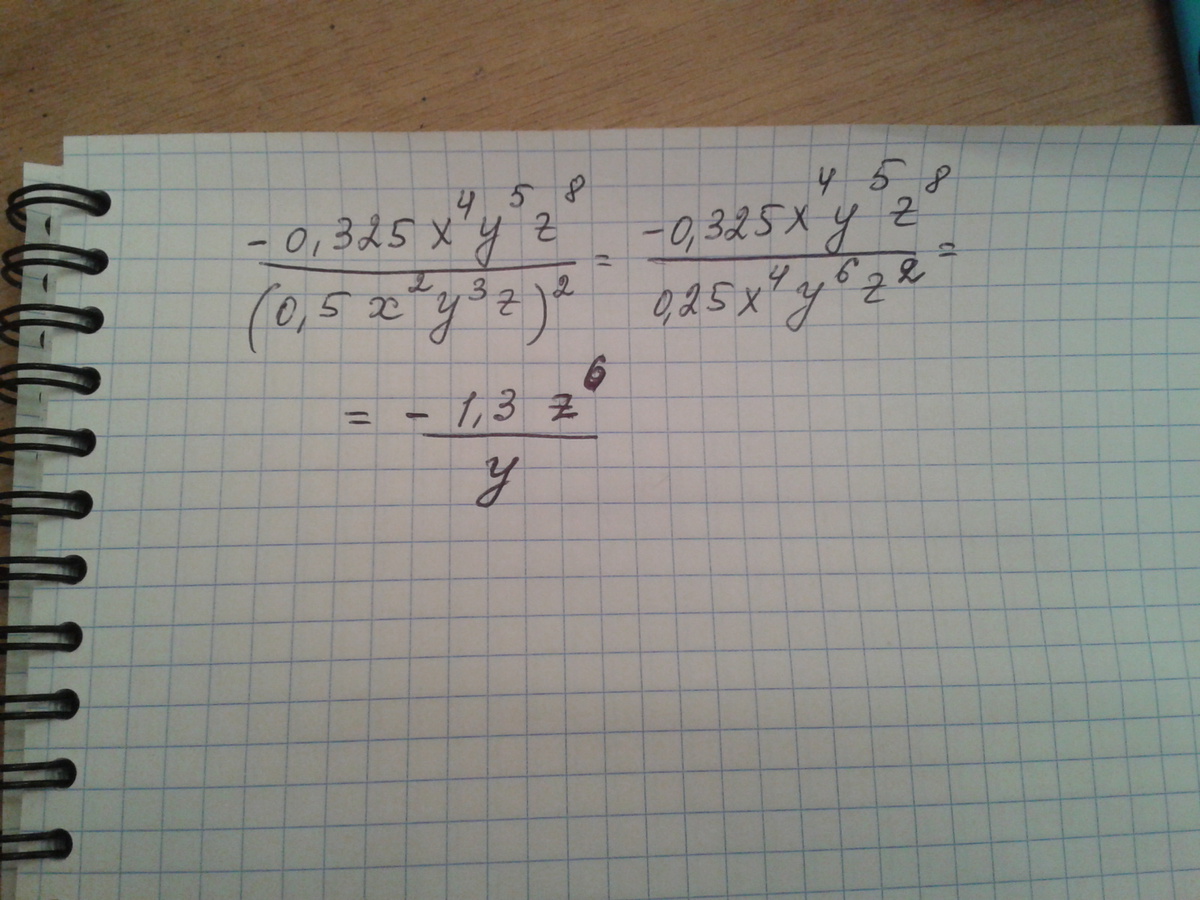 -0,325x⁴y⁵z⁸ / (0,5x²y³z)² = -0,325x⁴y⁵z⁸ / 0,25x⁴y⁶z² =
= - 1,3 z⁶ / y